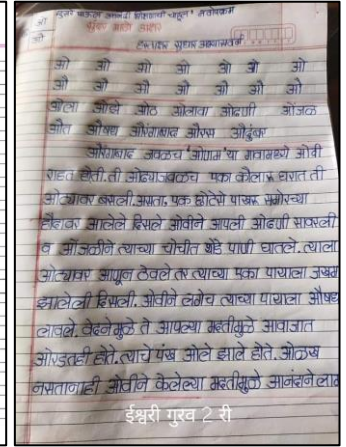 सुंदर माझे अक्षर
हस्ताक्षर सुधार
ओ ओ ओ ओ ओ ओ ओ
औ औ औ औ औ औ औ
ओला ओझे ओठ ओलावा ओढणी ओंजळ
औत औषध औरंगाबाद औरस औदुंबर
औरंगाबाद जवळच 'ओणम' या गावामध्ये ओवी
राहत होती. ती ओढ्याजवळच एका कौलारू घरात ती
ओट्यावर बसली असता. एक छोटेसे पाखरू समोरच्या
हौदावर आलेले दिसले ओवीने आपली ओढणी सावरली
व ओंजळीने त्याच्या चोचीत थोडे पाणी घातले. त्याला
ओट्यावर आणून ठेवले तर त्याच्या एका पायाला जखम
झालेली दिसली. ओवीने लगेच त्याच्या पायाला औषध
लावले. वेदनेमुळे ते आपल्या मदतीमुळे आवाजात
ओरडतही होते. त्याचे पंख ओले झाले होते. ओळख
नसतानाही ओवीने केलेल्या मदतीमुळे आनंदाने
ईश्वरी गुरव 2 री